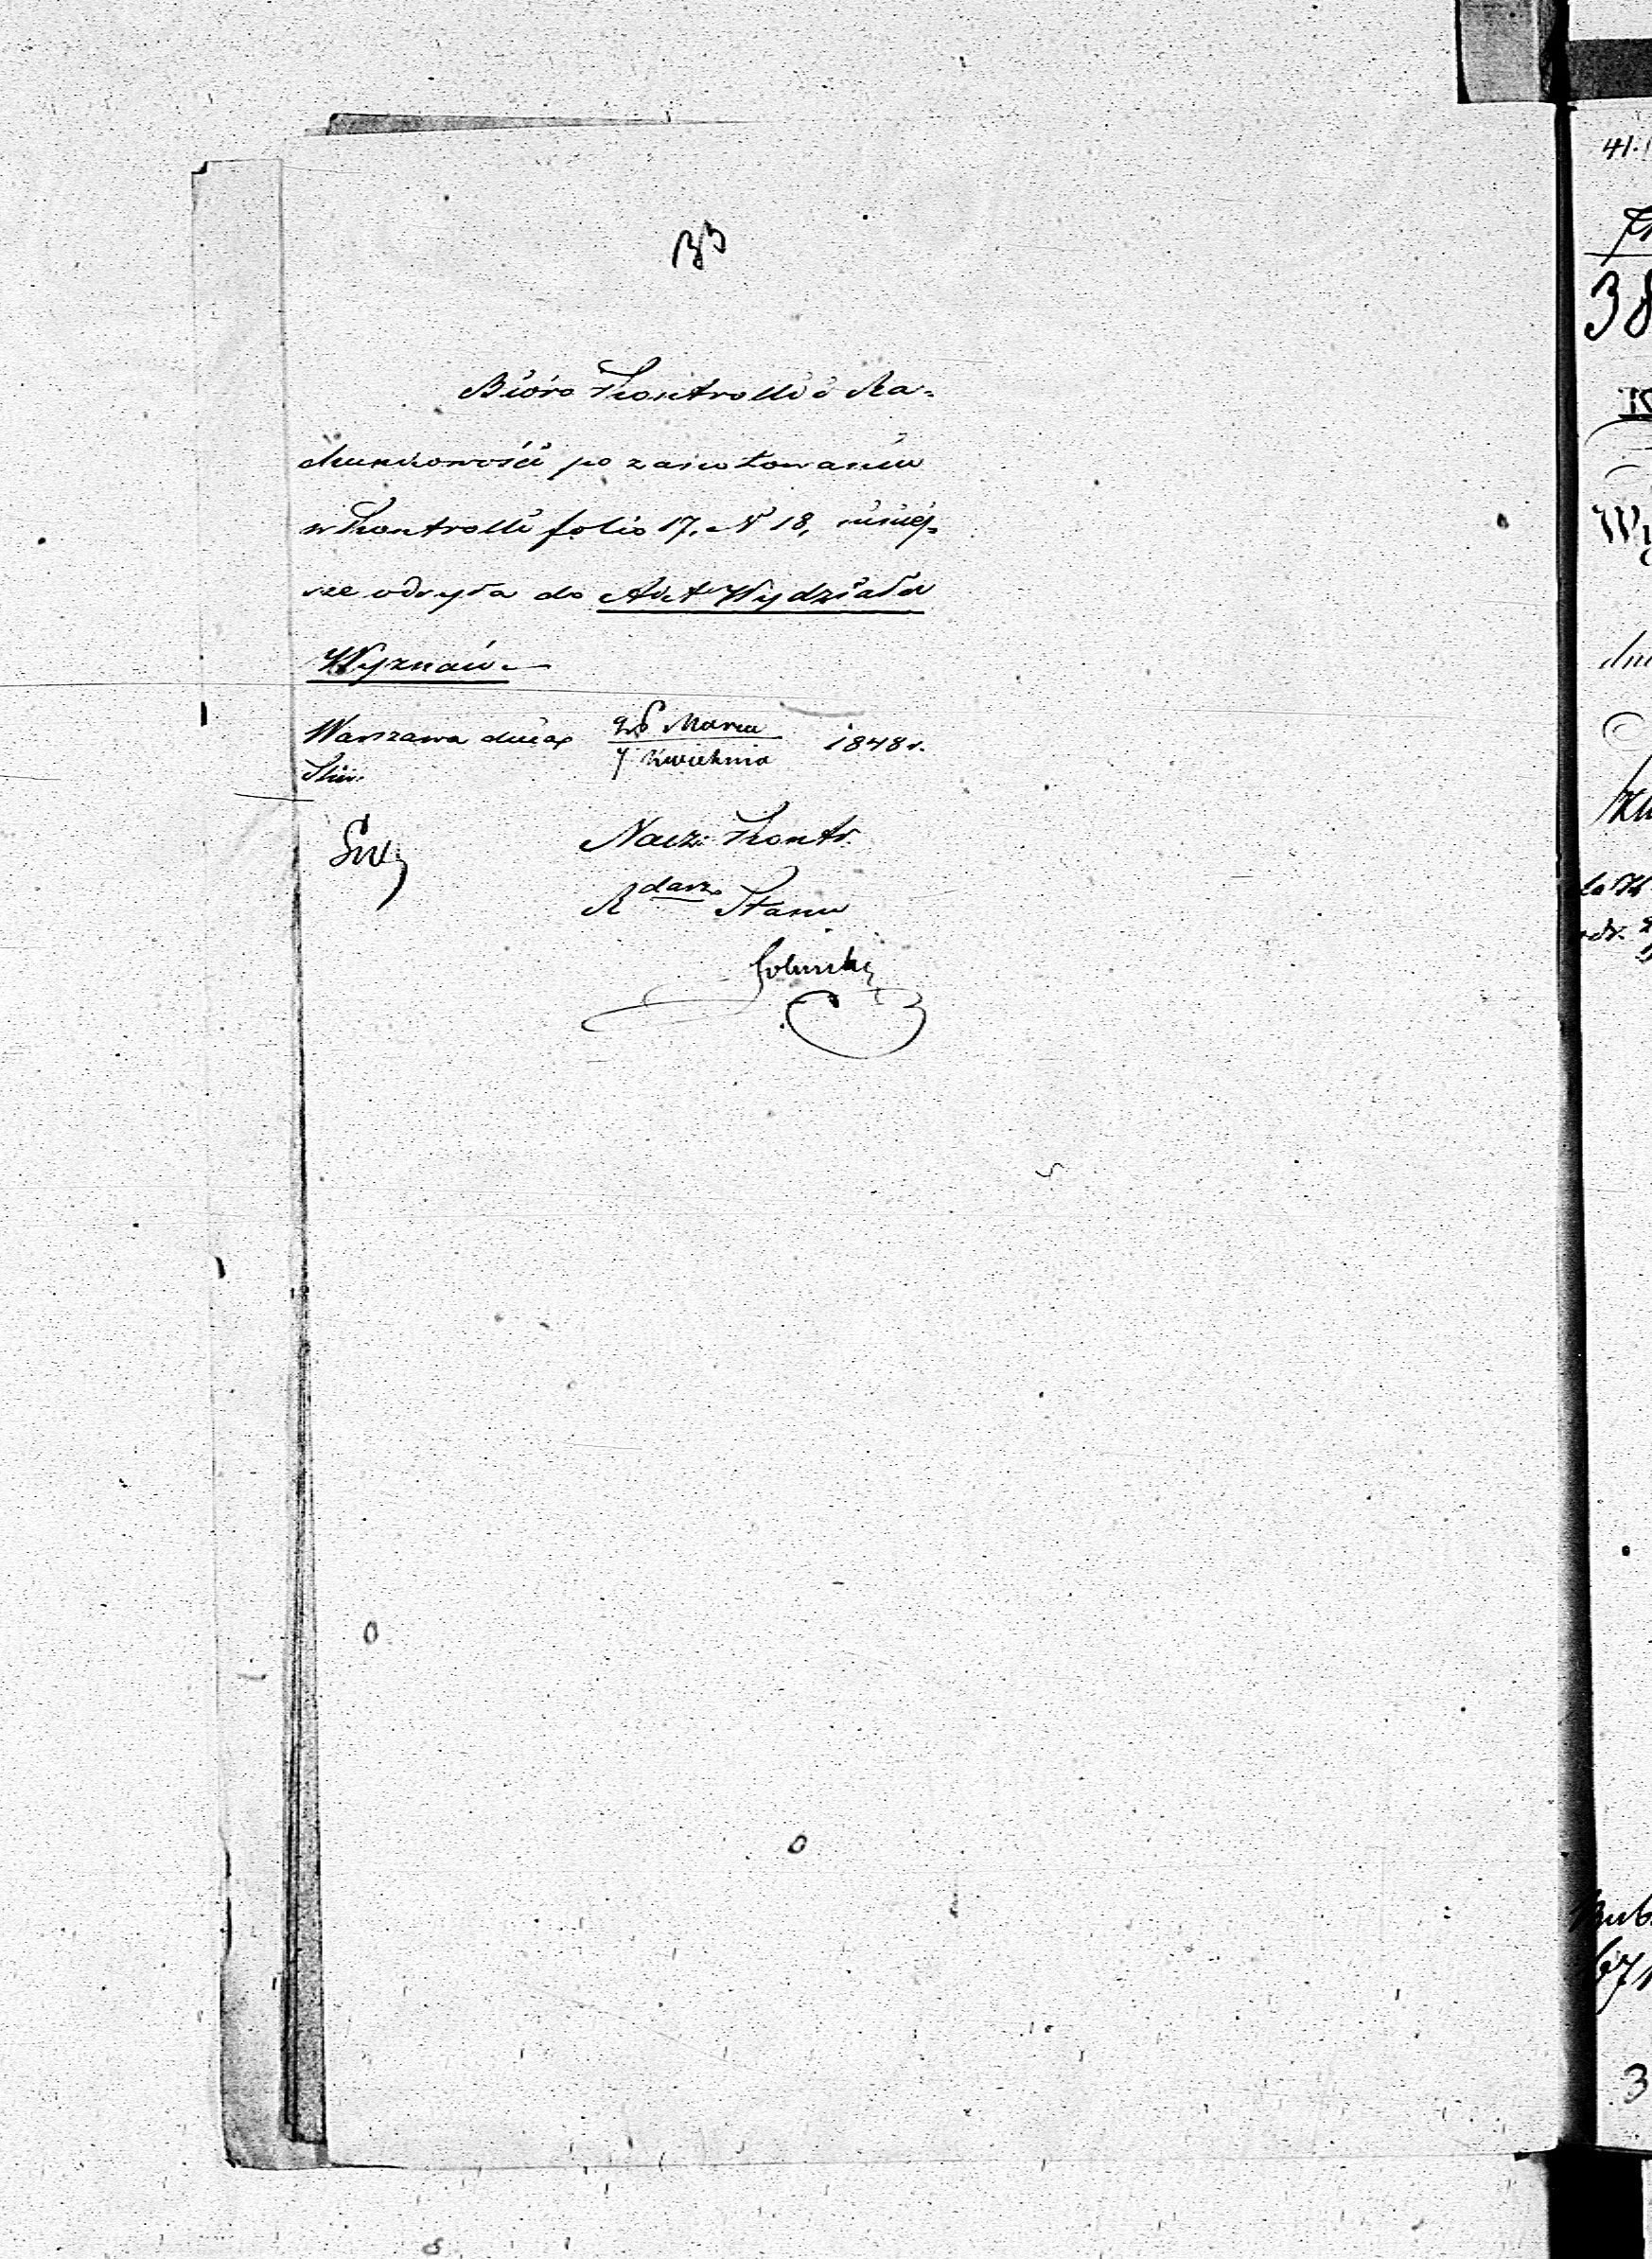 33
Bióro Kontrolli i Ra-
chunkowości po zanotowaniu
w Kontrolli folio 17, N 18, niniej-
sze odsyła do Akt Wydziału
Wyznań.
Warszawa dnia 26 Marca / 7 Kwietnia 1848 r.
Nacz: Kontr.
Rdarz Stanu
41.
38
dni
3